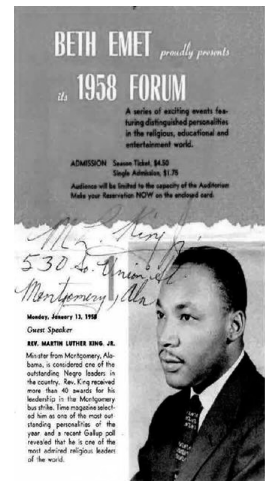 BETH EMET proudly presents
its 1958 FORUM
A series of exciting events fea-
turing distinguished personalities
in the religious, educational and
entertainment world.
ADMISSION Season Ticket, $4.50
Single Admission, $1.75
Audience will be limited to the capacity of the Auditorium
Make your Reservation NOW on the enclosed card.
M. L. King Jr.
530 So. Union St
Montgomery, Ala
Monday, January 13, 1958
Guest Speaker
REV. MARTIN LUTHER KING, JR.
Minister from Montgomery, Ala-
bama, is considered one of the
outstanding Negro leaders in
the country. Rev. King received
more than 40 awards for his
leadership in the Montgomery
bus strike. Time magazine select-
ed him as one of the most out-
standing personalities of the
year, and a recent Gallup poll
revealed that he is one of the
most admired religious leaders
of the world.